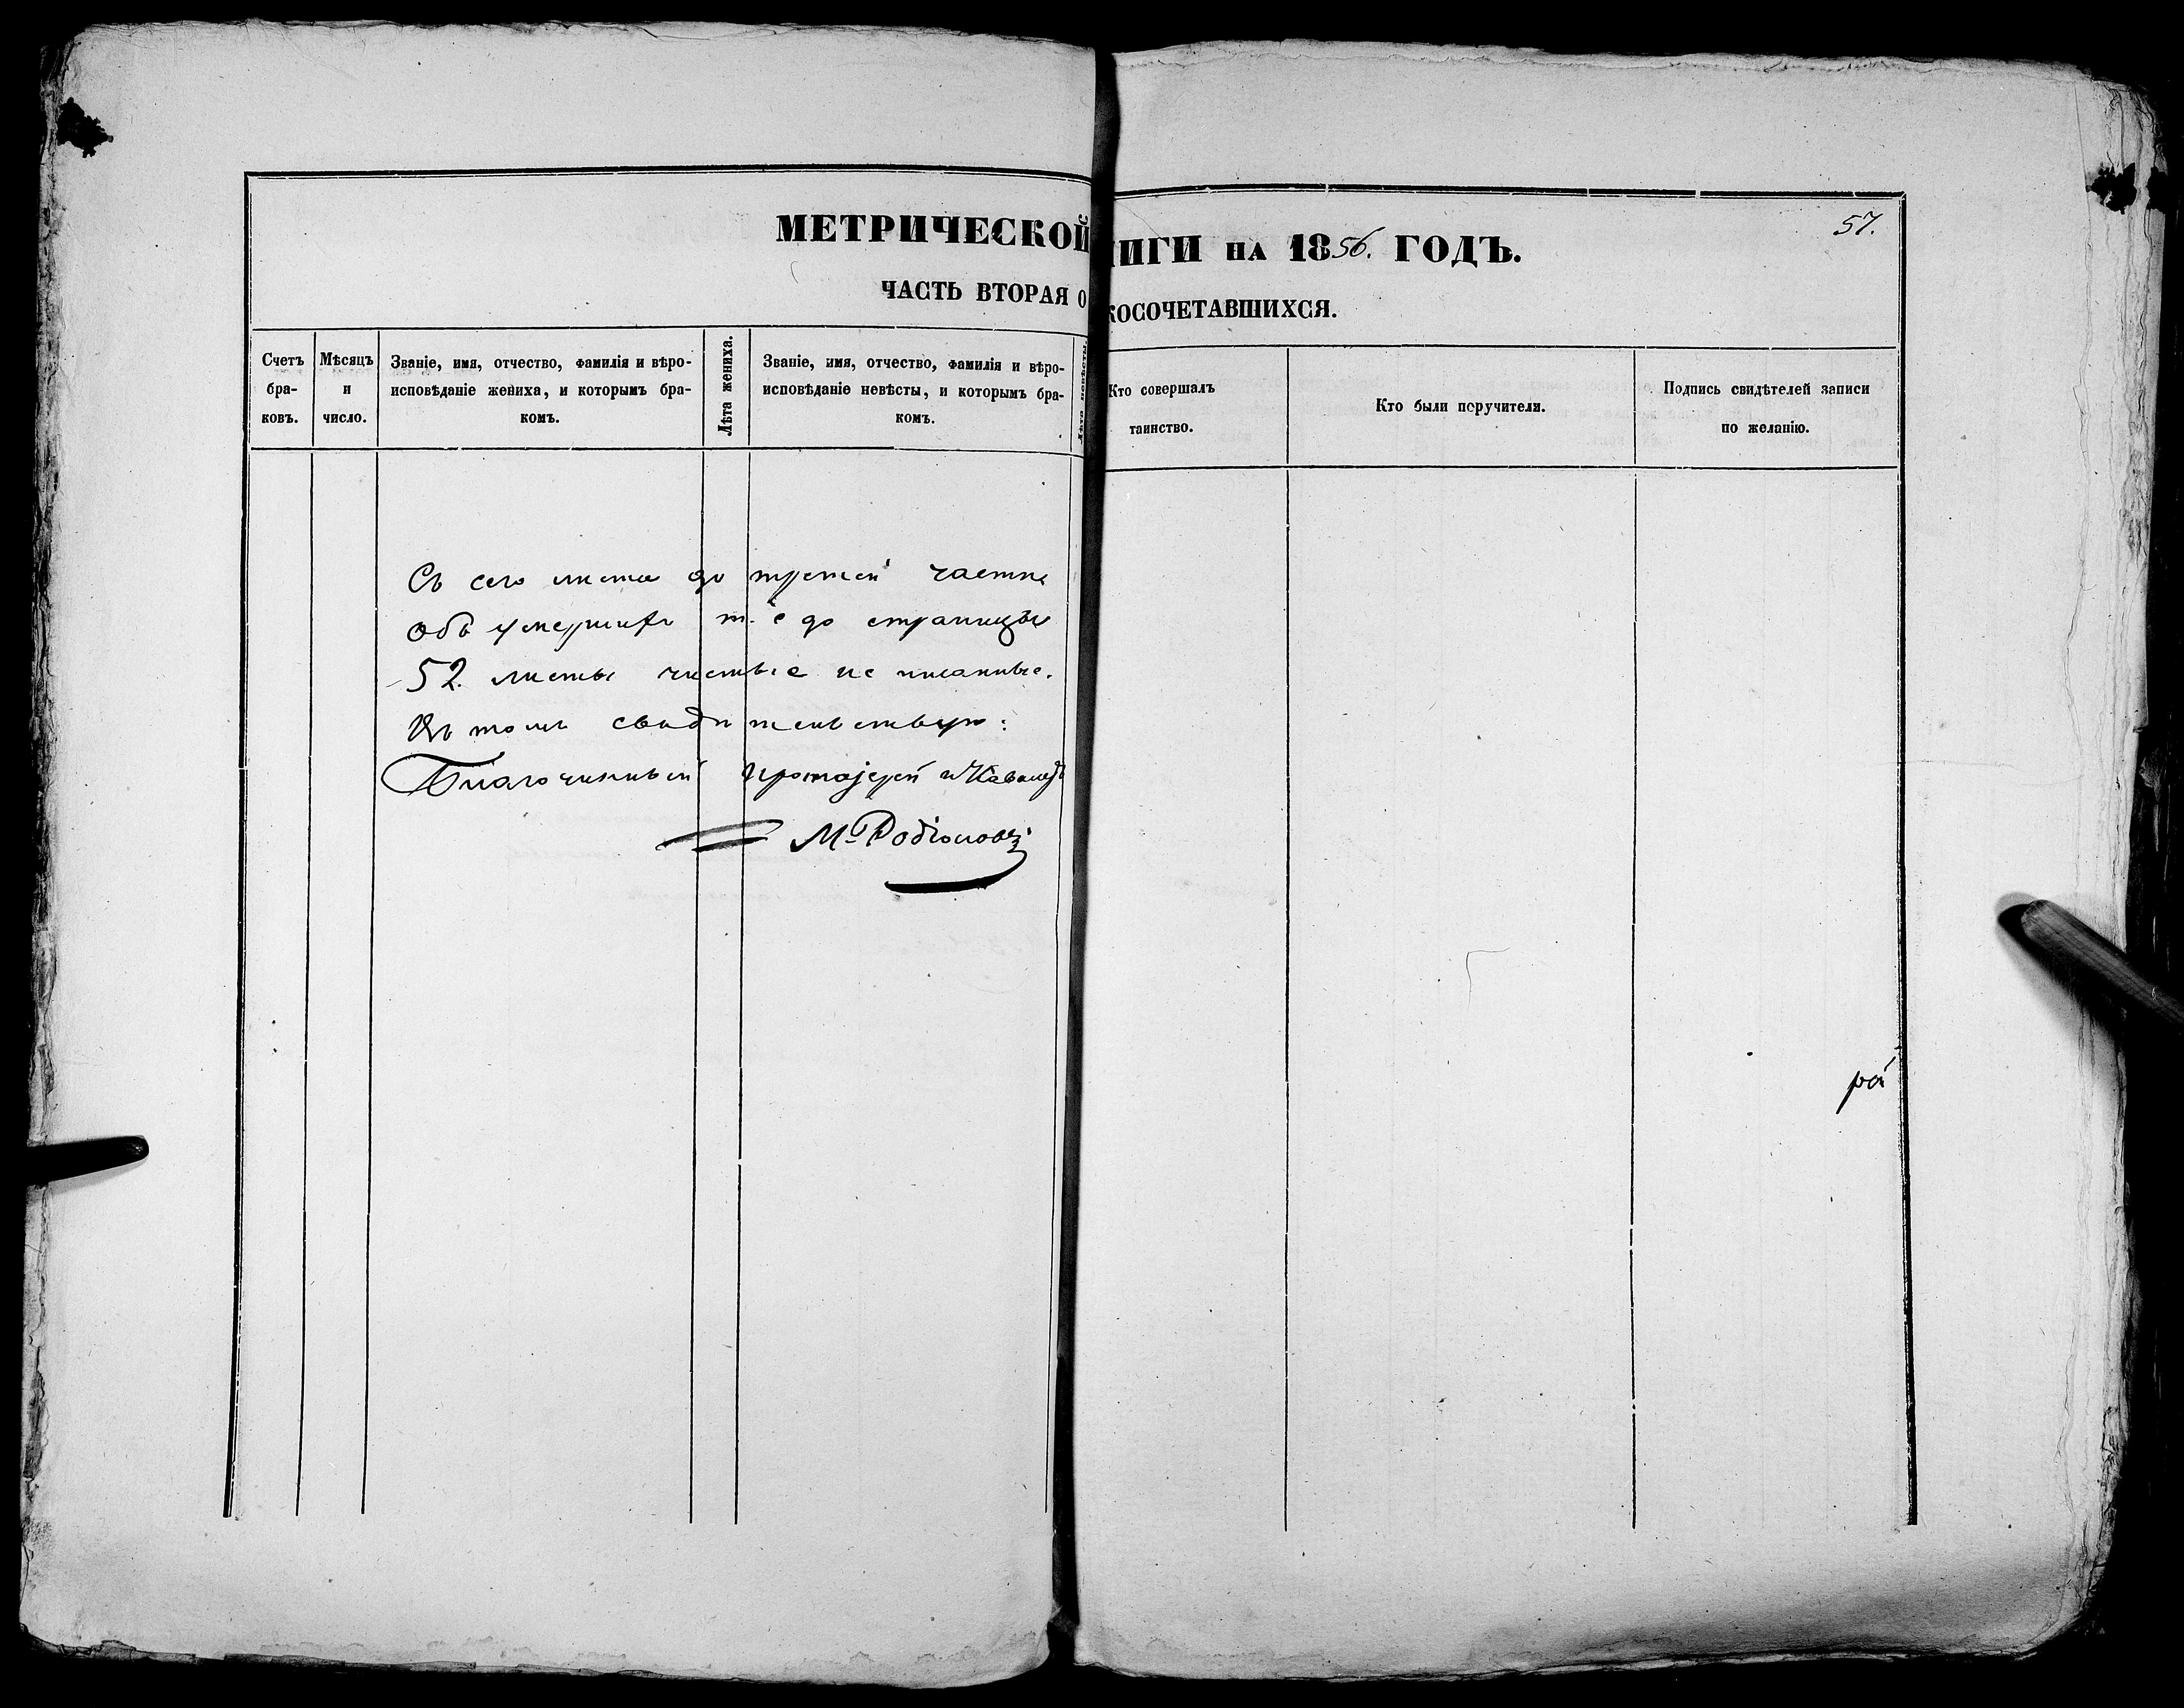 МЕТРИЧЕСКОЙ
ЧАСТЬ ВТОРАЯ О
Счетъ бра-ковъ.
Мѣсяцъ и число.
Званіе, имя, отчество, фамилія и вѣро-
исповѣданіе жениха, и которымъ бра-
комъ.
Лѣта жениха.
Званіе, имя, отчество, фамилія и вѣро-
исповѣданіе невѣсты, и которымъ бра-
комъ.
Лѣта невѣсты
Съ сего листа до третей части
объ умершихъ т. е до страницы
52. листы чистые не писанные.
Въ томъ свидѣтельствую:
Благочинный Протоіерей и Кавалеръ
М. Родіоновъ
ИГИ НА 1856. ГОДЪ.
57.
КОСОЧЕТАВШИХСЯ.
Кто совершалъ
таинство.
Кто были поручители.
Подпись свидѣтелей записи
по желанію.
рой